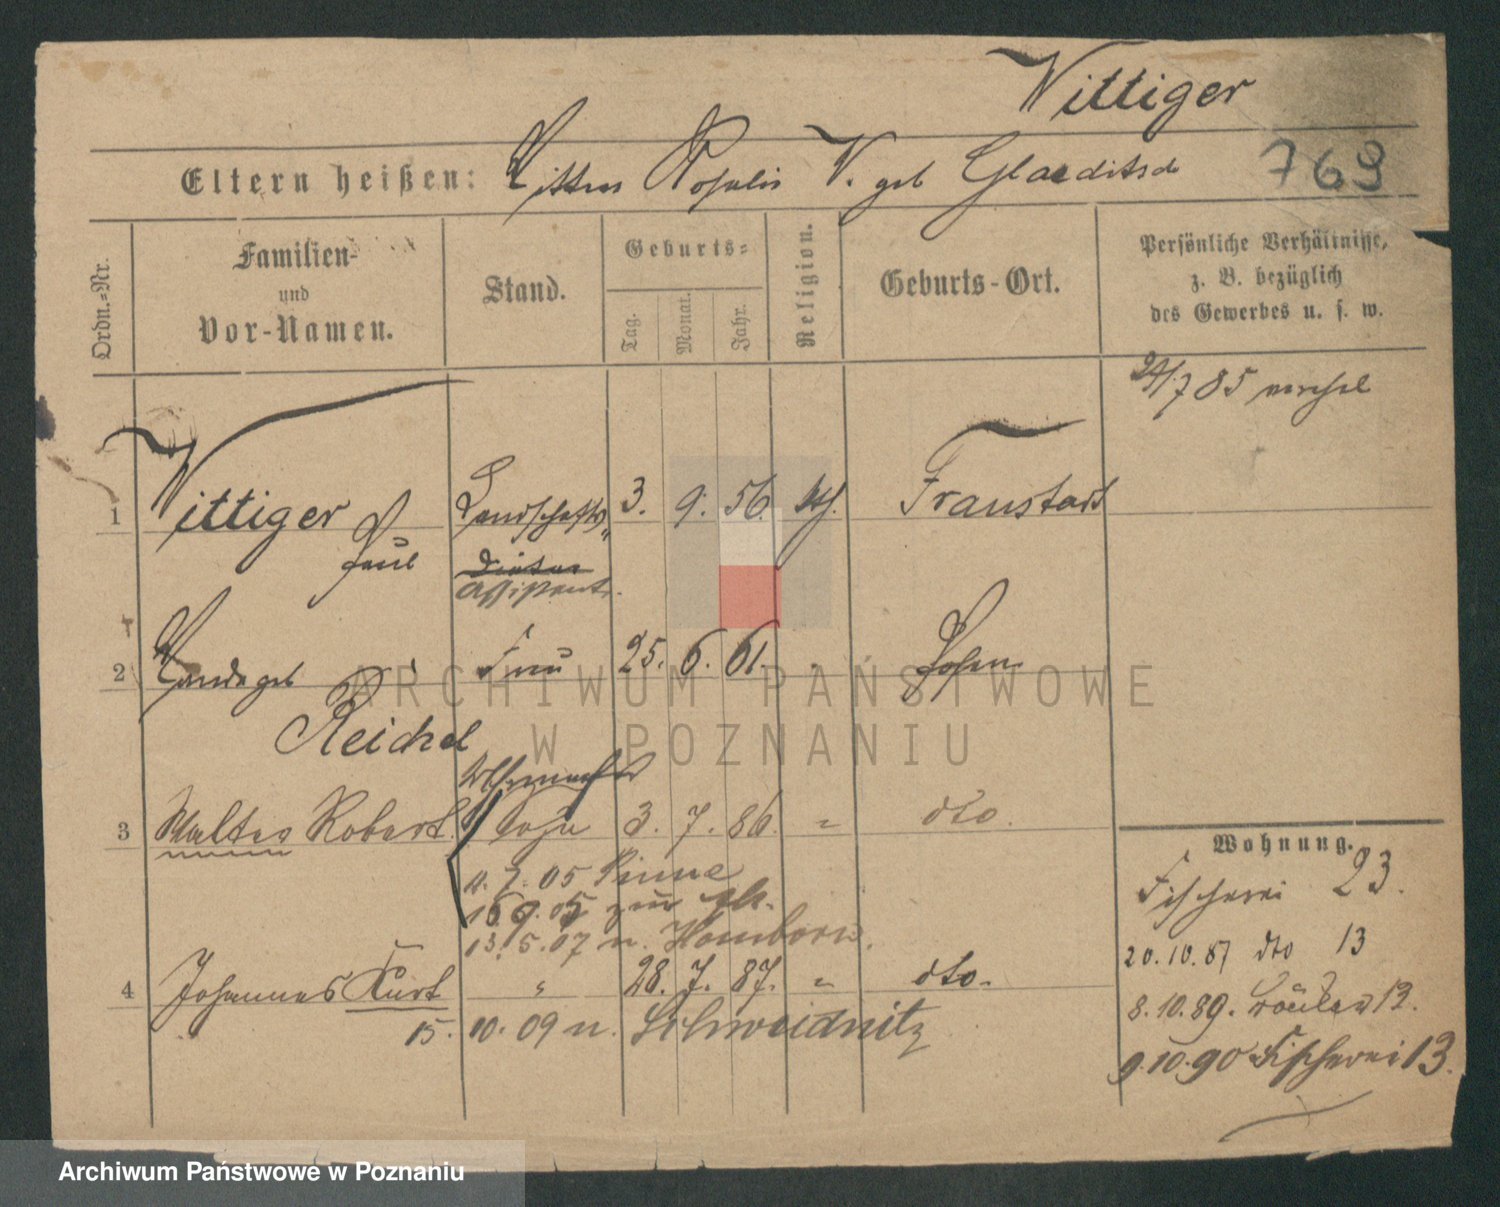 Wittiger
Eltern heißen: Rosalie W. geb Glaeditsch
769
Ordn.=Nr.
Familien- und Vor-Namen.
Stand.
Geburts=
Tag.
Monat.
Jahr.
Religion.
Geburts-Ort.
Persönliche Verhältnisse,
z. B. bezüglich
des Gewerbes u. s. w.
24/7 85
1 Wittiger Landschafts 3. 9. 56. kth. Fraustadt
Paul
Assistent.
2 geb Frau 25. 6. 61. Posen
Reichel
3 Walter Robert Sohn 3. 7. 86. " dto.
11. 7. 05 Pinne
13. 5. 07 n.
4 Johannes Kurt " 28. 7. 87. " dto.
15. 10. 09 n. Schweidnitz
Wohnung.
Fischerei 23.
20.10.87 dto 13
8.10.89. 12.
9.10.90 Fischerei 13.
ARCHIWUM PAŃSTWOWE
W POZNANIU
Archiwum Państwowe w Poznaniu